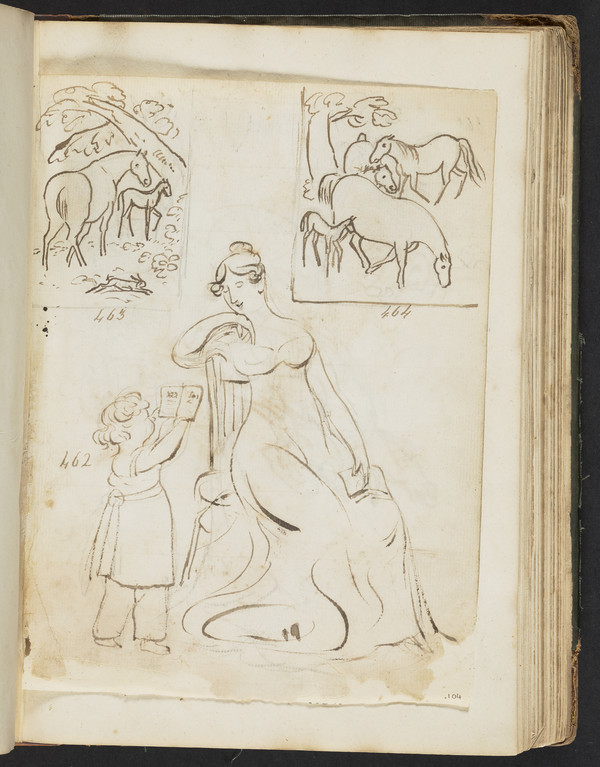 463
464
462
.104